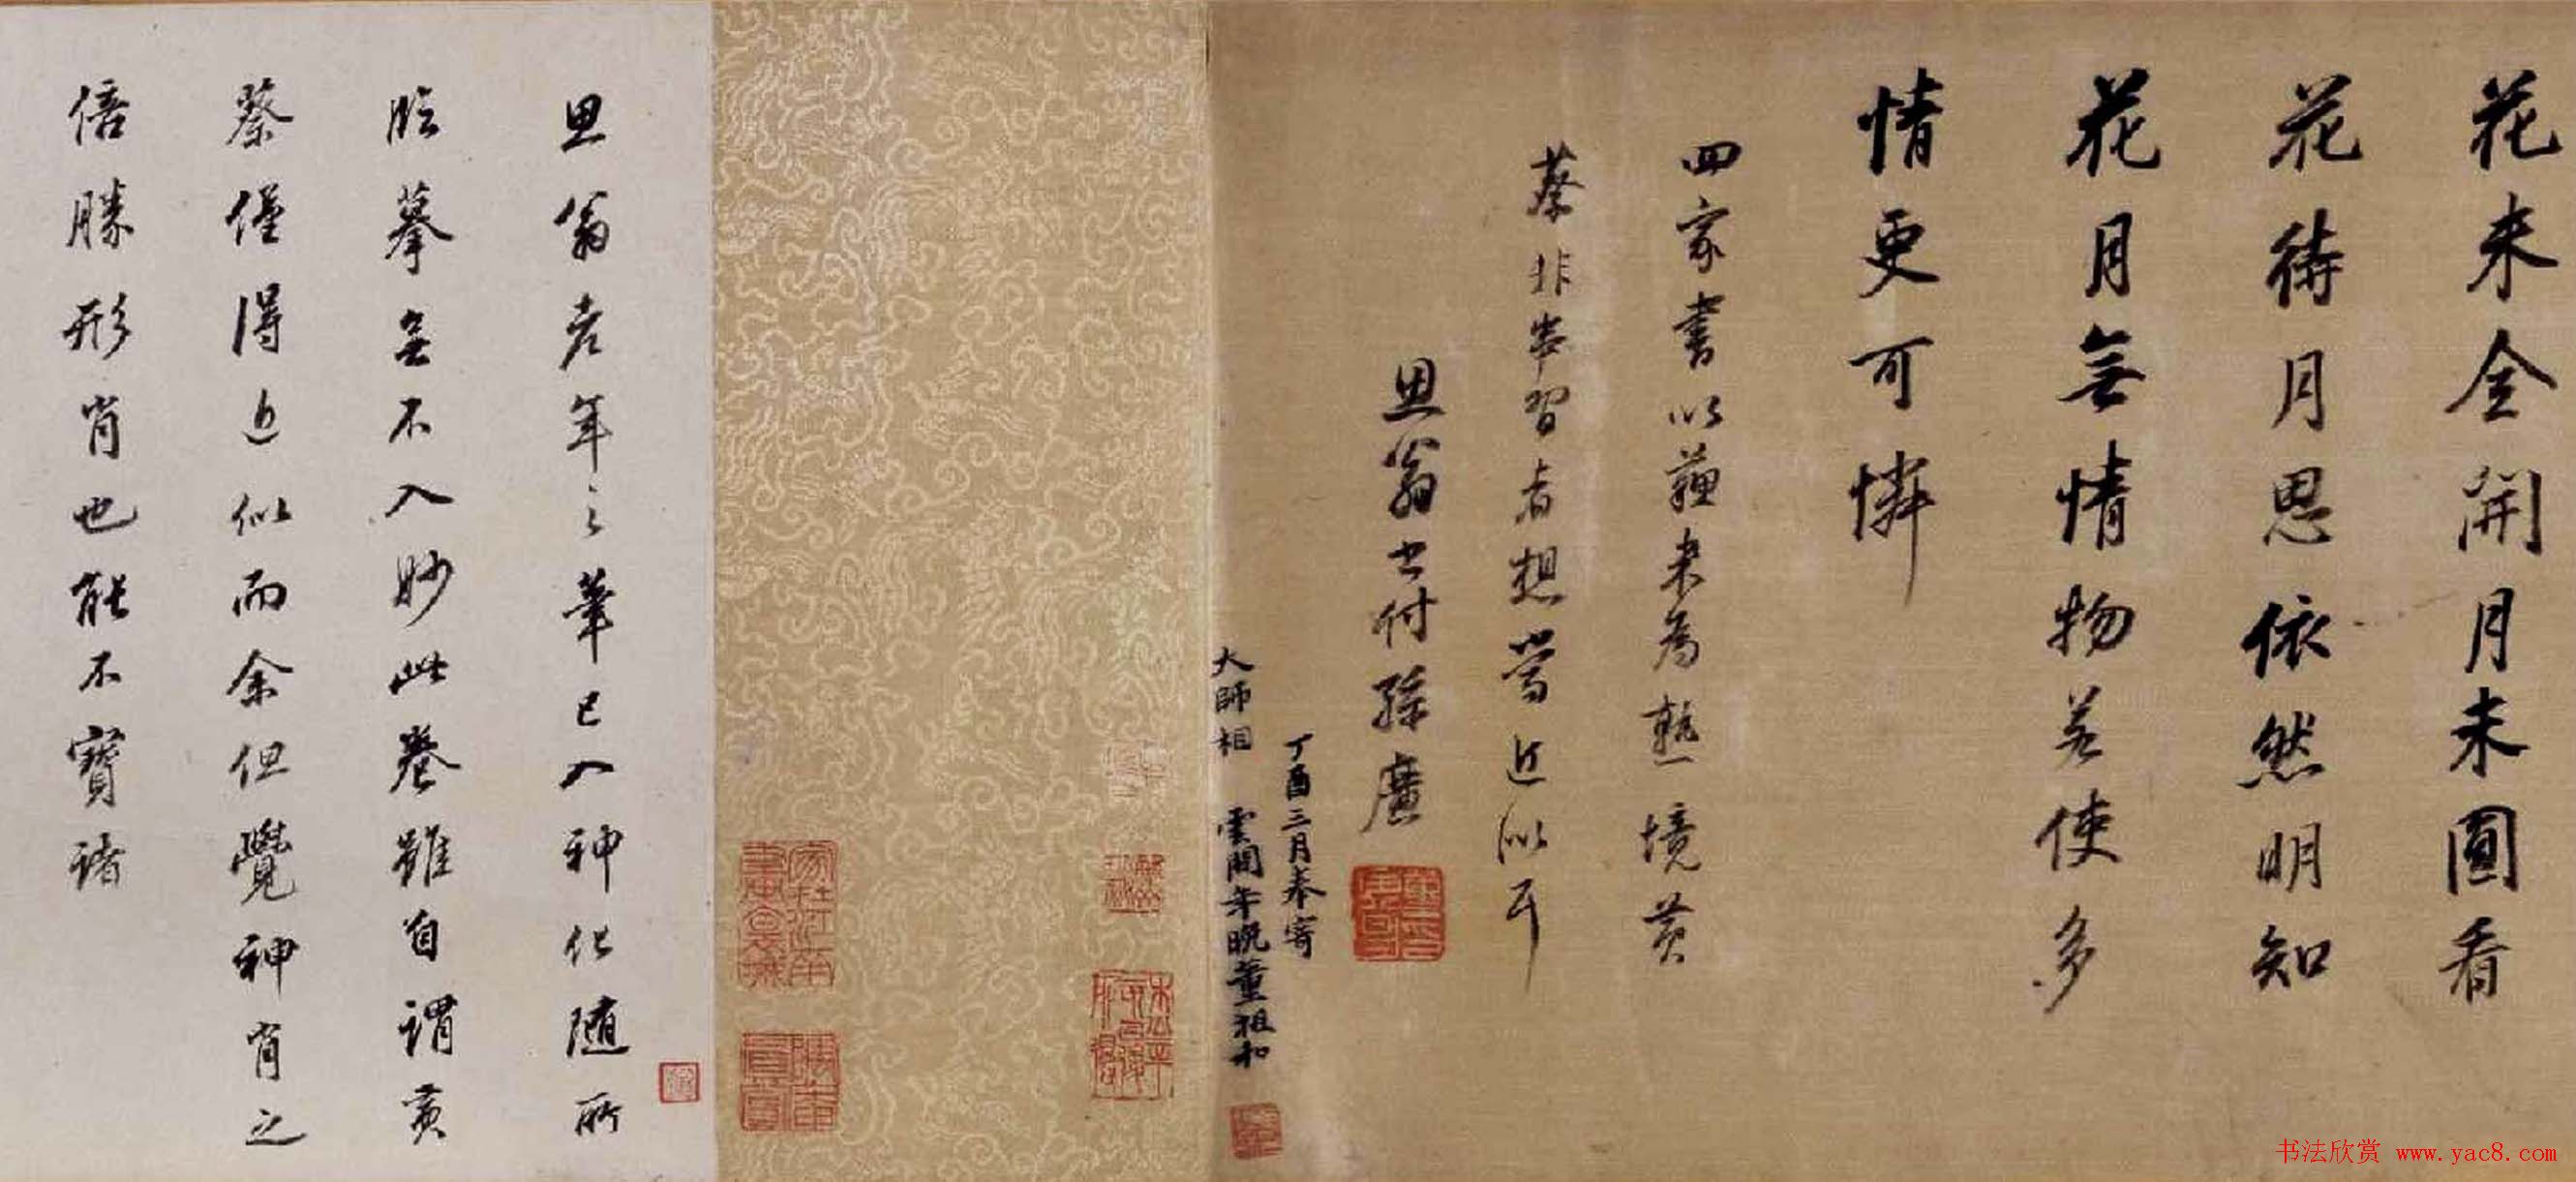 花未全開月未圓看
花待月思依然明知
花月無情物若使多
情更可憐
四家書以蘇米為熟境黃
蔡非串習者想當近似耳
思翁書付孫廣
丁酉三月奉寄
大師相 雲間年晚董祖和
思翁老年之筆已入神化隨所
臨摹無不入妙此卷雖自謂黃
蔡僅得近似而余但覺神肖之
倍勝形肖也能不寶諸
书法欣赏 www.yac8.com